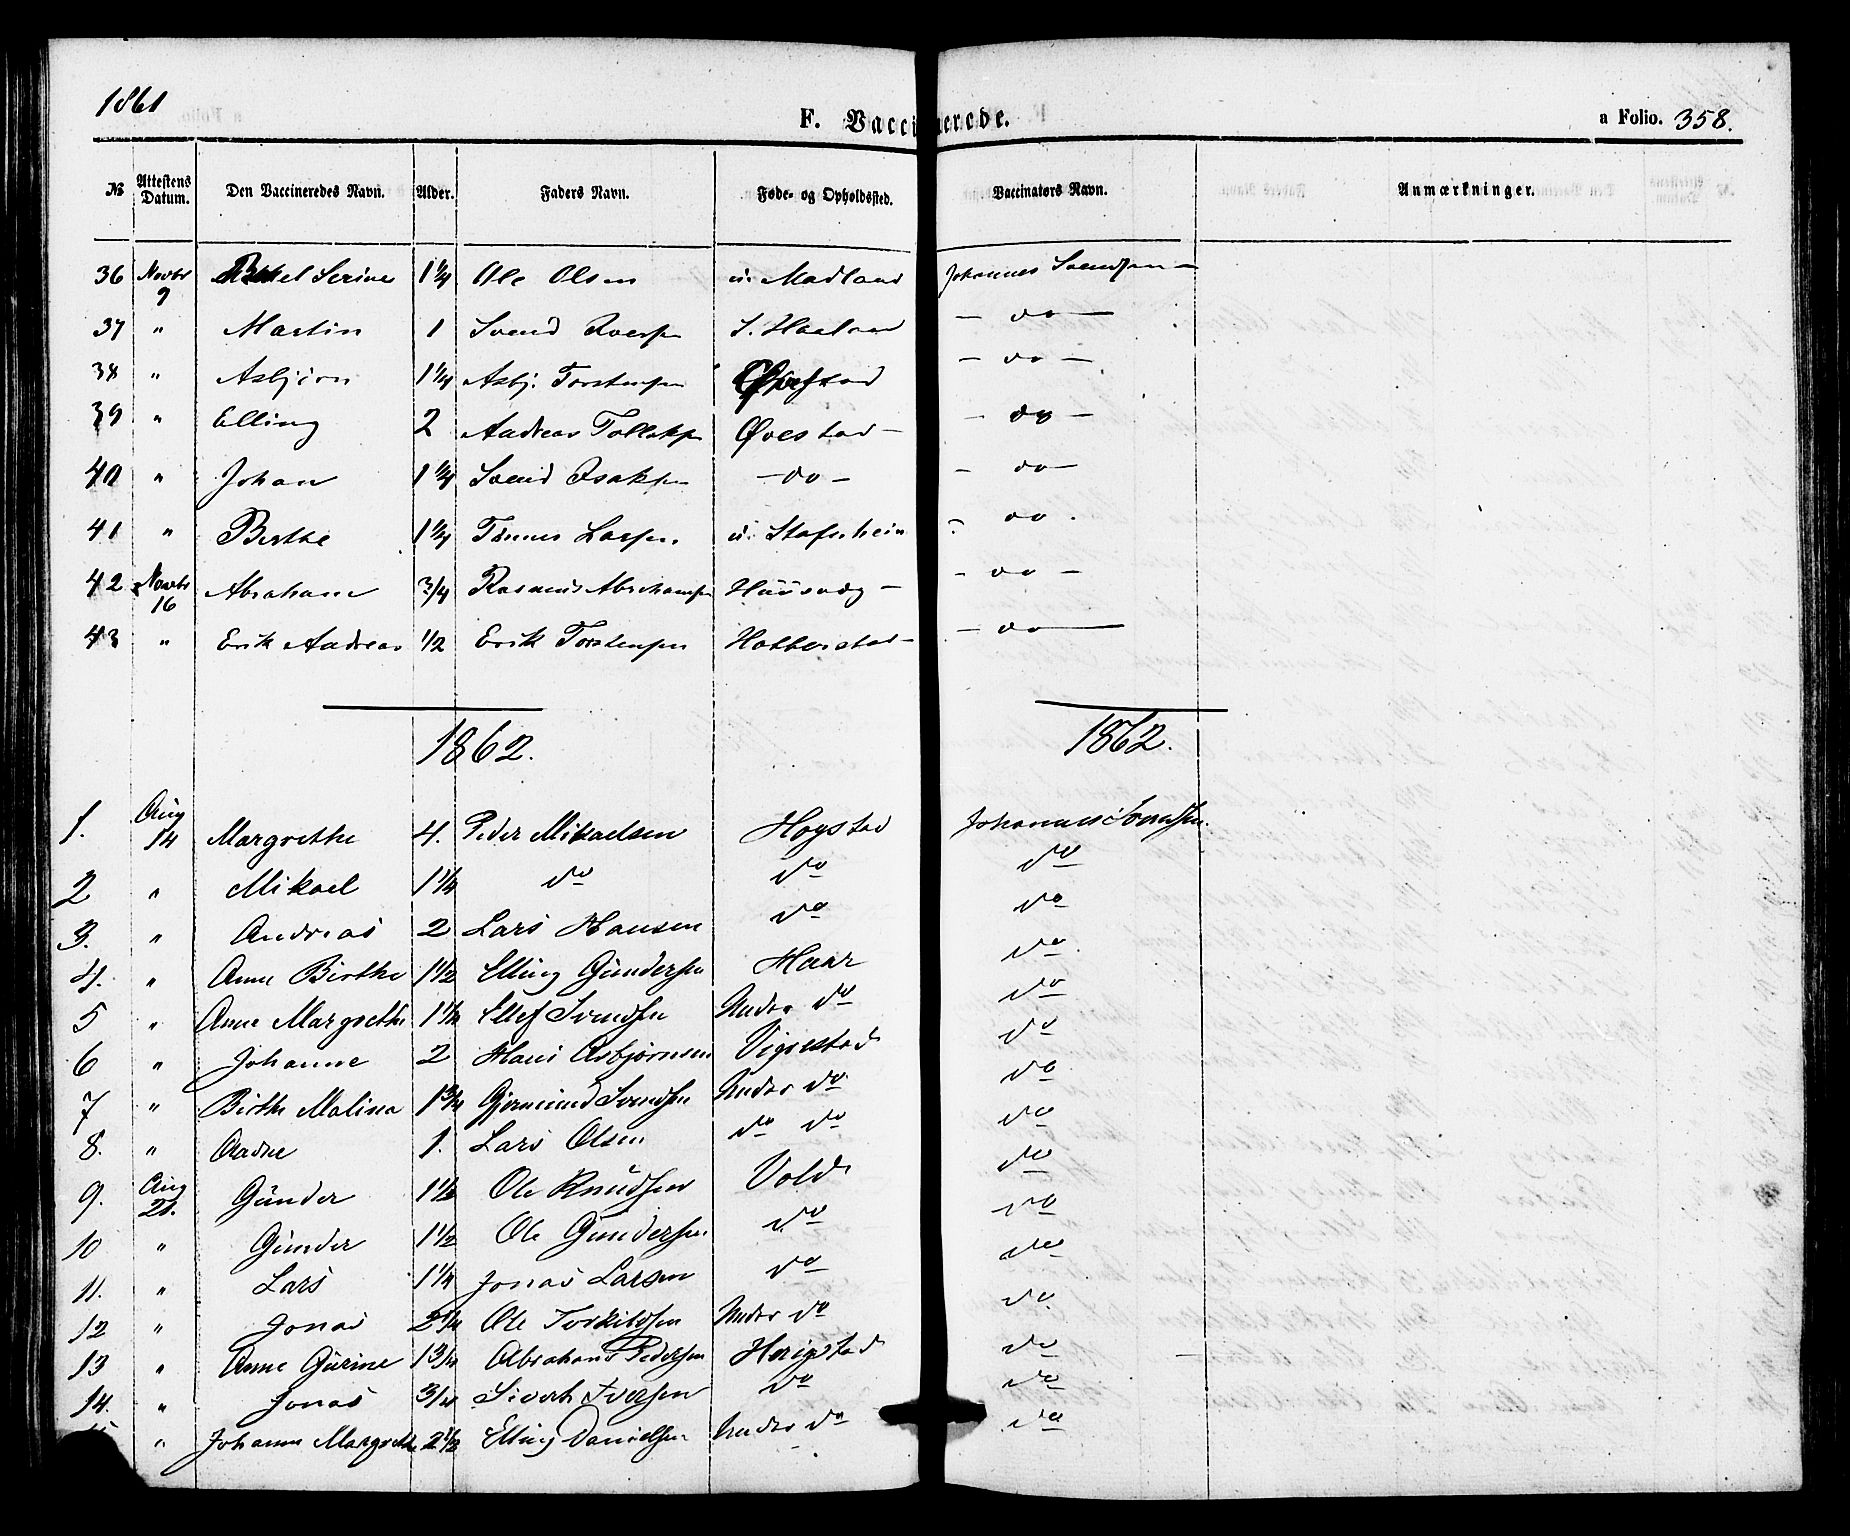 1861 F. Vaccinerede. a Folio. 358.
№ Attestens Datum. Den Vaccineredes Navn. Alder. Faders Navn. Føde- og Opholdssted. Vaccinators Navn. Anmærkninger.
36 Novbr 9 Serine 1 1/4 Ole Olsen u. Madland Johannes Svendsen —
37 " Martin 1 Svend Iversen S. Haaland — do —
38 " Asbjørn 1 1/4 Asbj. Torstensen — do —
39 " Elling 2 Andreas Tollaksen Øvestad — — do —
40 " Johan 1 1/4 Svend Isaksen — do — — do —
41 " Berthe 1 1/4 Tønnes Larsen u. - do .
42 Novbr 16 Abraham 3/4 Rasmus Abrahamsen — — do —
43 " Erik Andreas 1/2 Erik Torstensen Hobberstad — — do —
1862. 1862.
1. Aug 14 Margrethe 4. Peder Mikaelsen Hogstad Johannes Svendsen.
2 " Mikael 1 1/4 do do do
3. " Andreas 2 Lars Hansen do do
4. " Anne Birthe 1 1/2 Elling Gundersen Haar do
5 " Anne Margrethe 1 1/4 Ellef Svendsen Under do do
6 " Johanne 2 Hans Asbjørnsen Vigrestad do
7 " Birthe Malina 1 3/4 Gjermund Svendsen Under do do
8. " Aadne 1. Lars Olsen do do do
9. Aug 21. Gunder 1 1/2 Ole Knudsen Vold do
10 " Gunder 1 1/2 Ole Gundersen do do
11. " Lars 1 1/4 Jonas Larsen do do
12 " Jonas 2 1/4 Ole Torkildsen Under do do
13 " Anne Gurine 1 3/4 Abraham Pedersen Herigstad do
14. " Jonas 3/4 Sivert Iversen do do
" Johanne Margrethe 2 1/2 Elling Danielsen Under do do